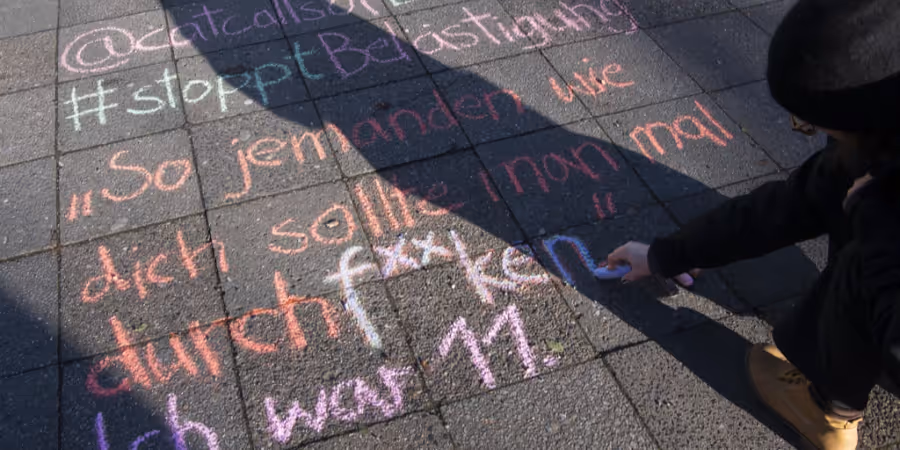 @catcallsof
#stoppt Belästigung
„So jemanden wie
dich sollte man mal
durchfxxken"
Ich war 11.